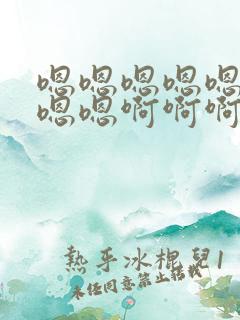 嗯嗯嗯嗯嗯
嗯嗯啊啊啊
熱乎冰棍兒1
未經同意禁止轉載